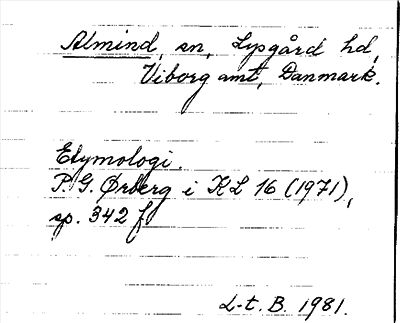 Almind, sn, Lysgård hd,
Viborg amt, Danmark.
Etymologi.
P. G. Ørberg i KL 16 (1971),
sp. 342 f
L-t. B. 1981.